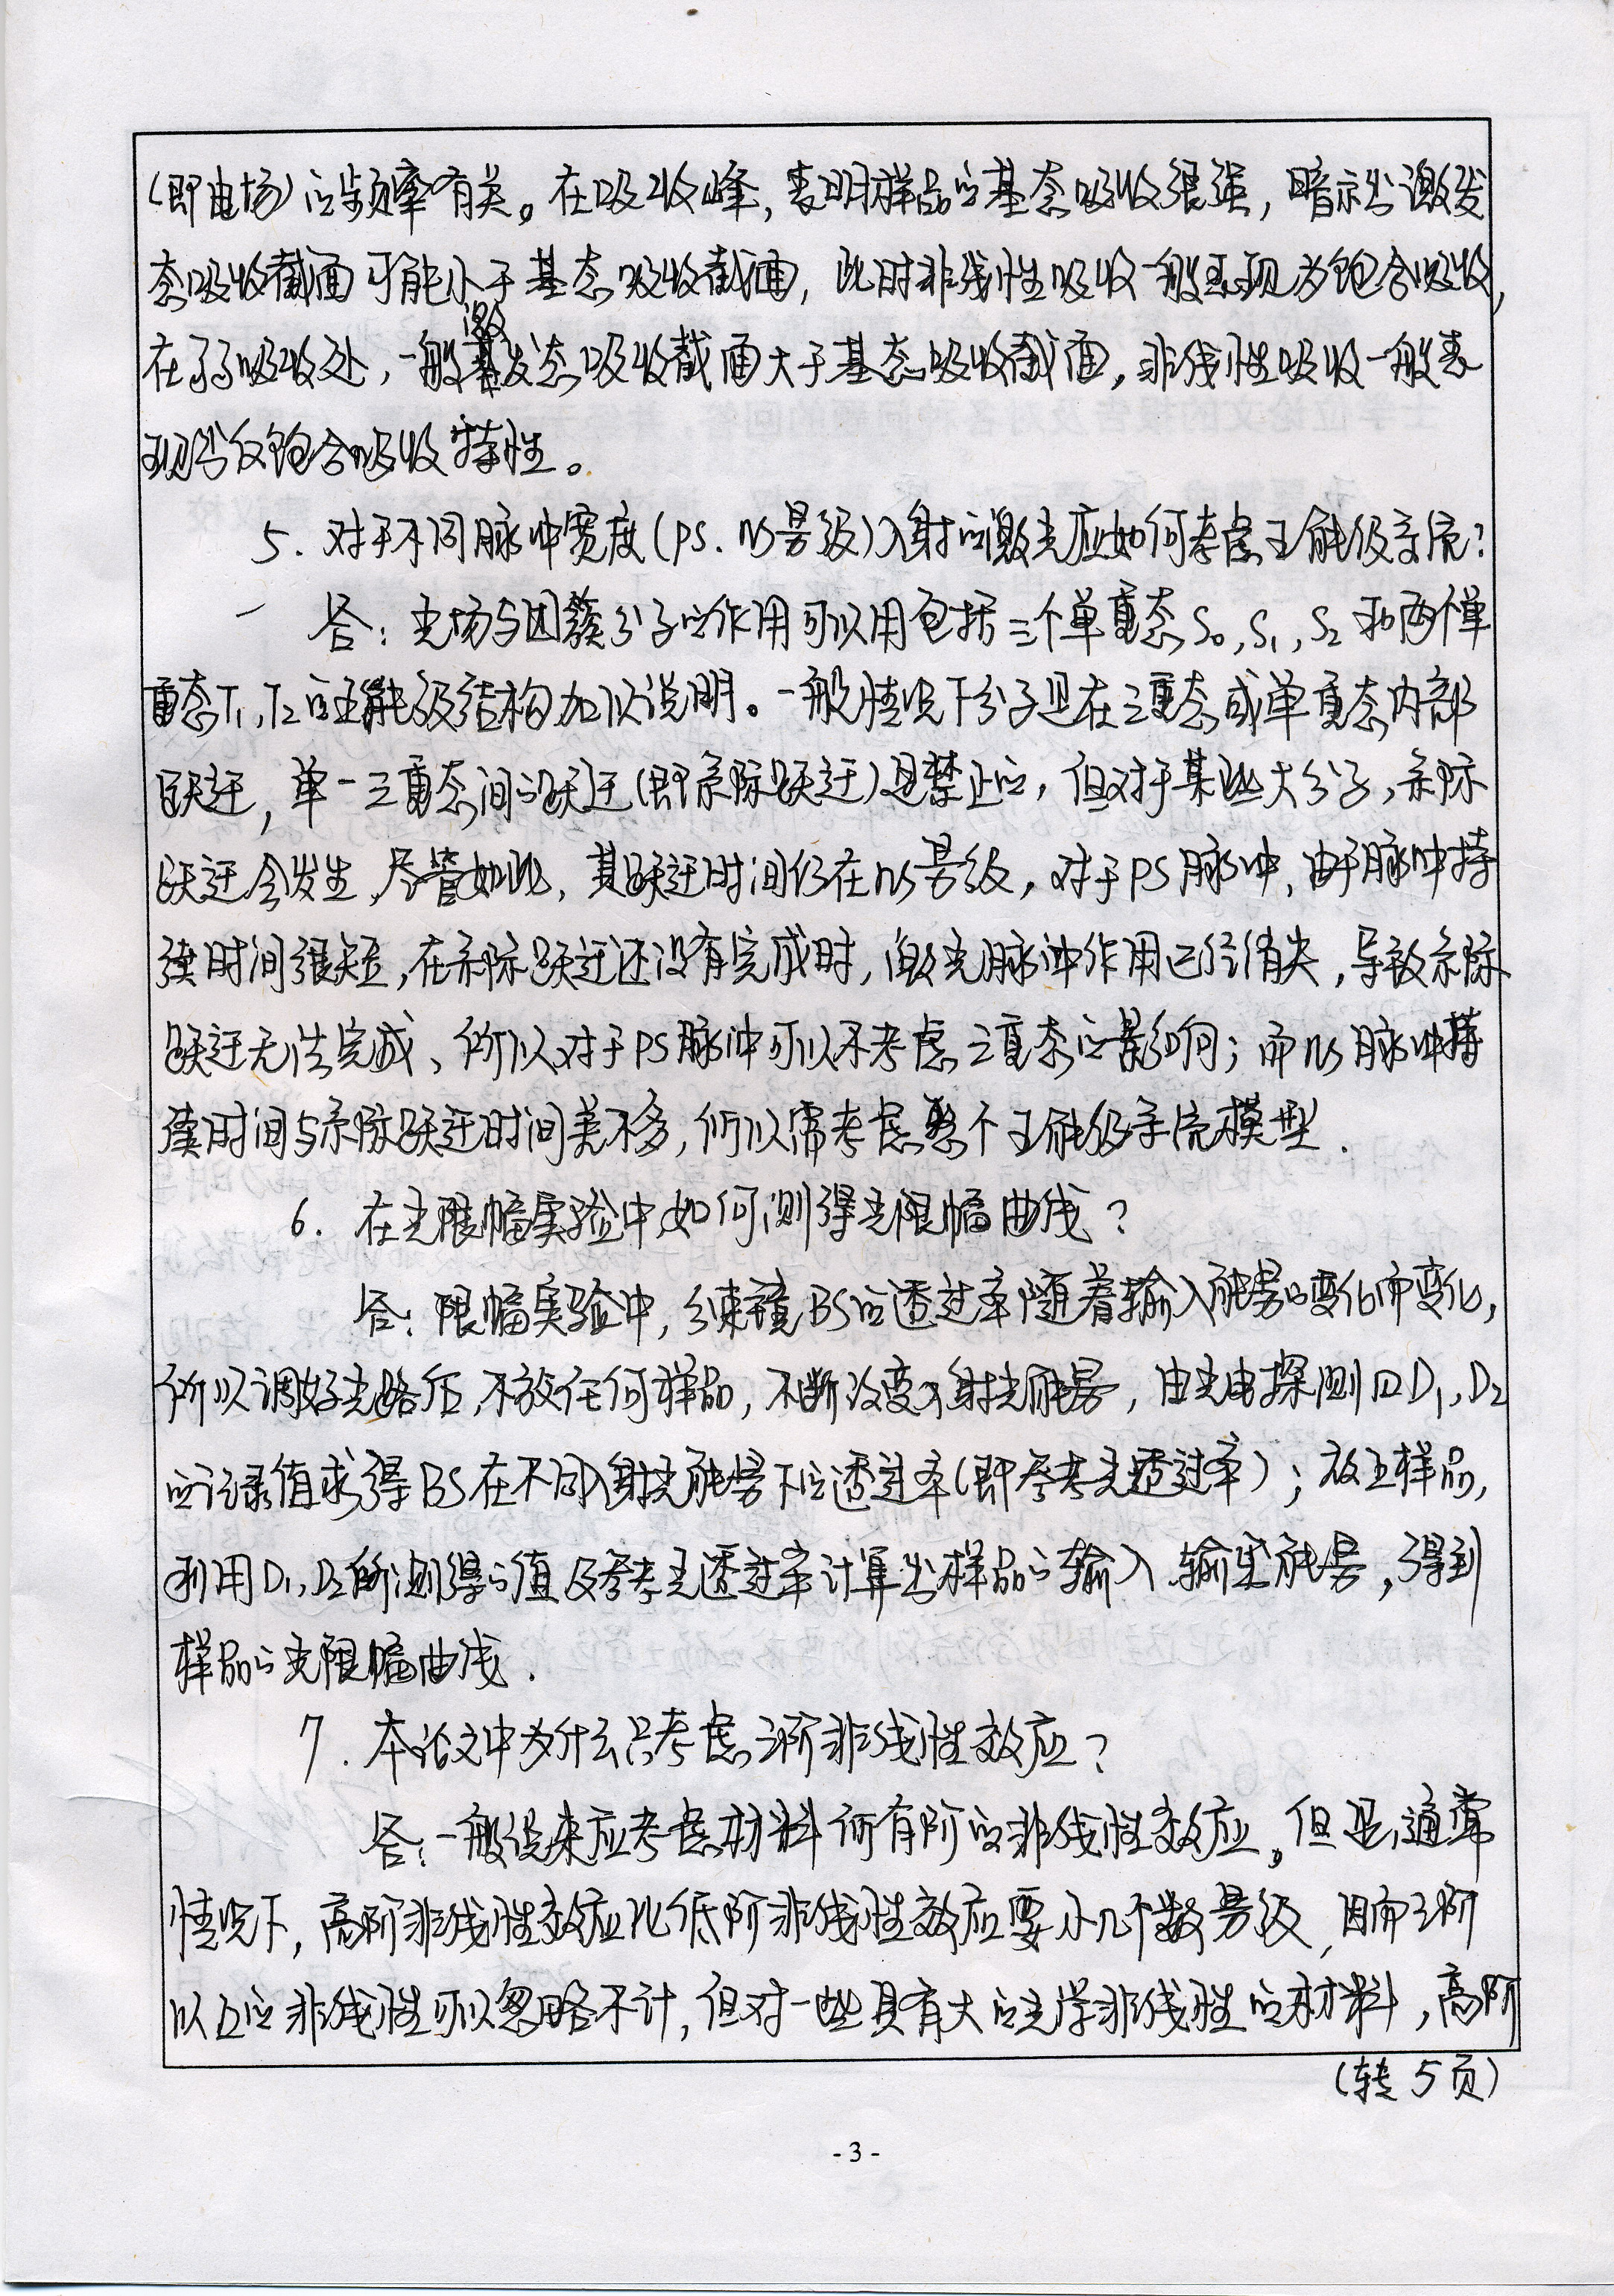 (即电场)的频率有关。在吸收峰,表明样品的基态吸收很强,暗示出激发
态吸收截面可能小于基态吸收截面,此时非线性吸收一般表现为饱合吸收,
在弱吸收处,一般激发态吸收截面大于基态吸收截面,非线性吸收一般表
现出反饱合吸收特性。
5. 对于不同脉冲宽度(ps. ns量级)入射的激光应如何考虑五能级系统?
答: 光场与团簇分子的作用可以用包括三个单重态S₀,S₁,S₂和两个单
重态T₁,T₂的五能级结构加以说明。一般情况下分子是在三重态或单重态内部
跃迁,单-三重态间的跃迁(即系际跃迁)是禁止的,但对于某些大分子,系际
跃迁会发生,尽管如此,其跃迁时间仍在ns量级,对于ps脉冲,由于脉冲持
续时间很短,在系际跃迁还没有完成时,激光脉冲作用已经消失,导致系际
跃迁无法完成、所以对于ps脉冲可以不考虑三重态的影响;而ns脉冲持
续时间与系际跃迁时间差不多,所以需考虑整个五能级系统模型.
6. 在光限幅实验中如何测得光限幅曲线?
答: 限幅实验中,分束镜BS的透过率随着输入能量的变化而变化,
所以调好光路后,不放任何样品,不断改变入射光能量,由光电探测器D₁,D₂
的记录值求得BS在不同入射光能量下的透过率(即参考光透过率);放上样品,
利用D₁,D₂所测得的值及参考光透过率计算出样品的输入、输出能量,得到
样品的光限幅曲线.
7. 本论文中为什么只考虑三阶非线性效应?
答: 一般说来应考虑材料所有阶的非线性效应。但是,通常
情况下,高阶非线性效应比低阶非线性效应要小几个数量级,因而三阶
以上的非线性可以忽略不计,但对一些具有大的光学非线性的材料,高阶
(转5页)
-3-